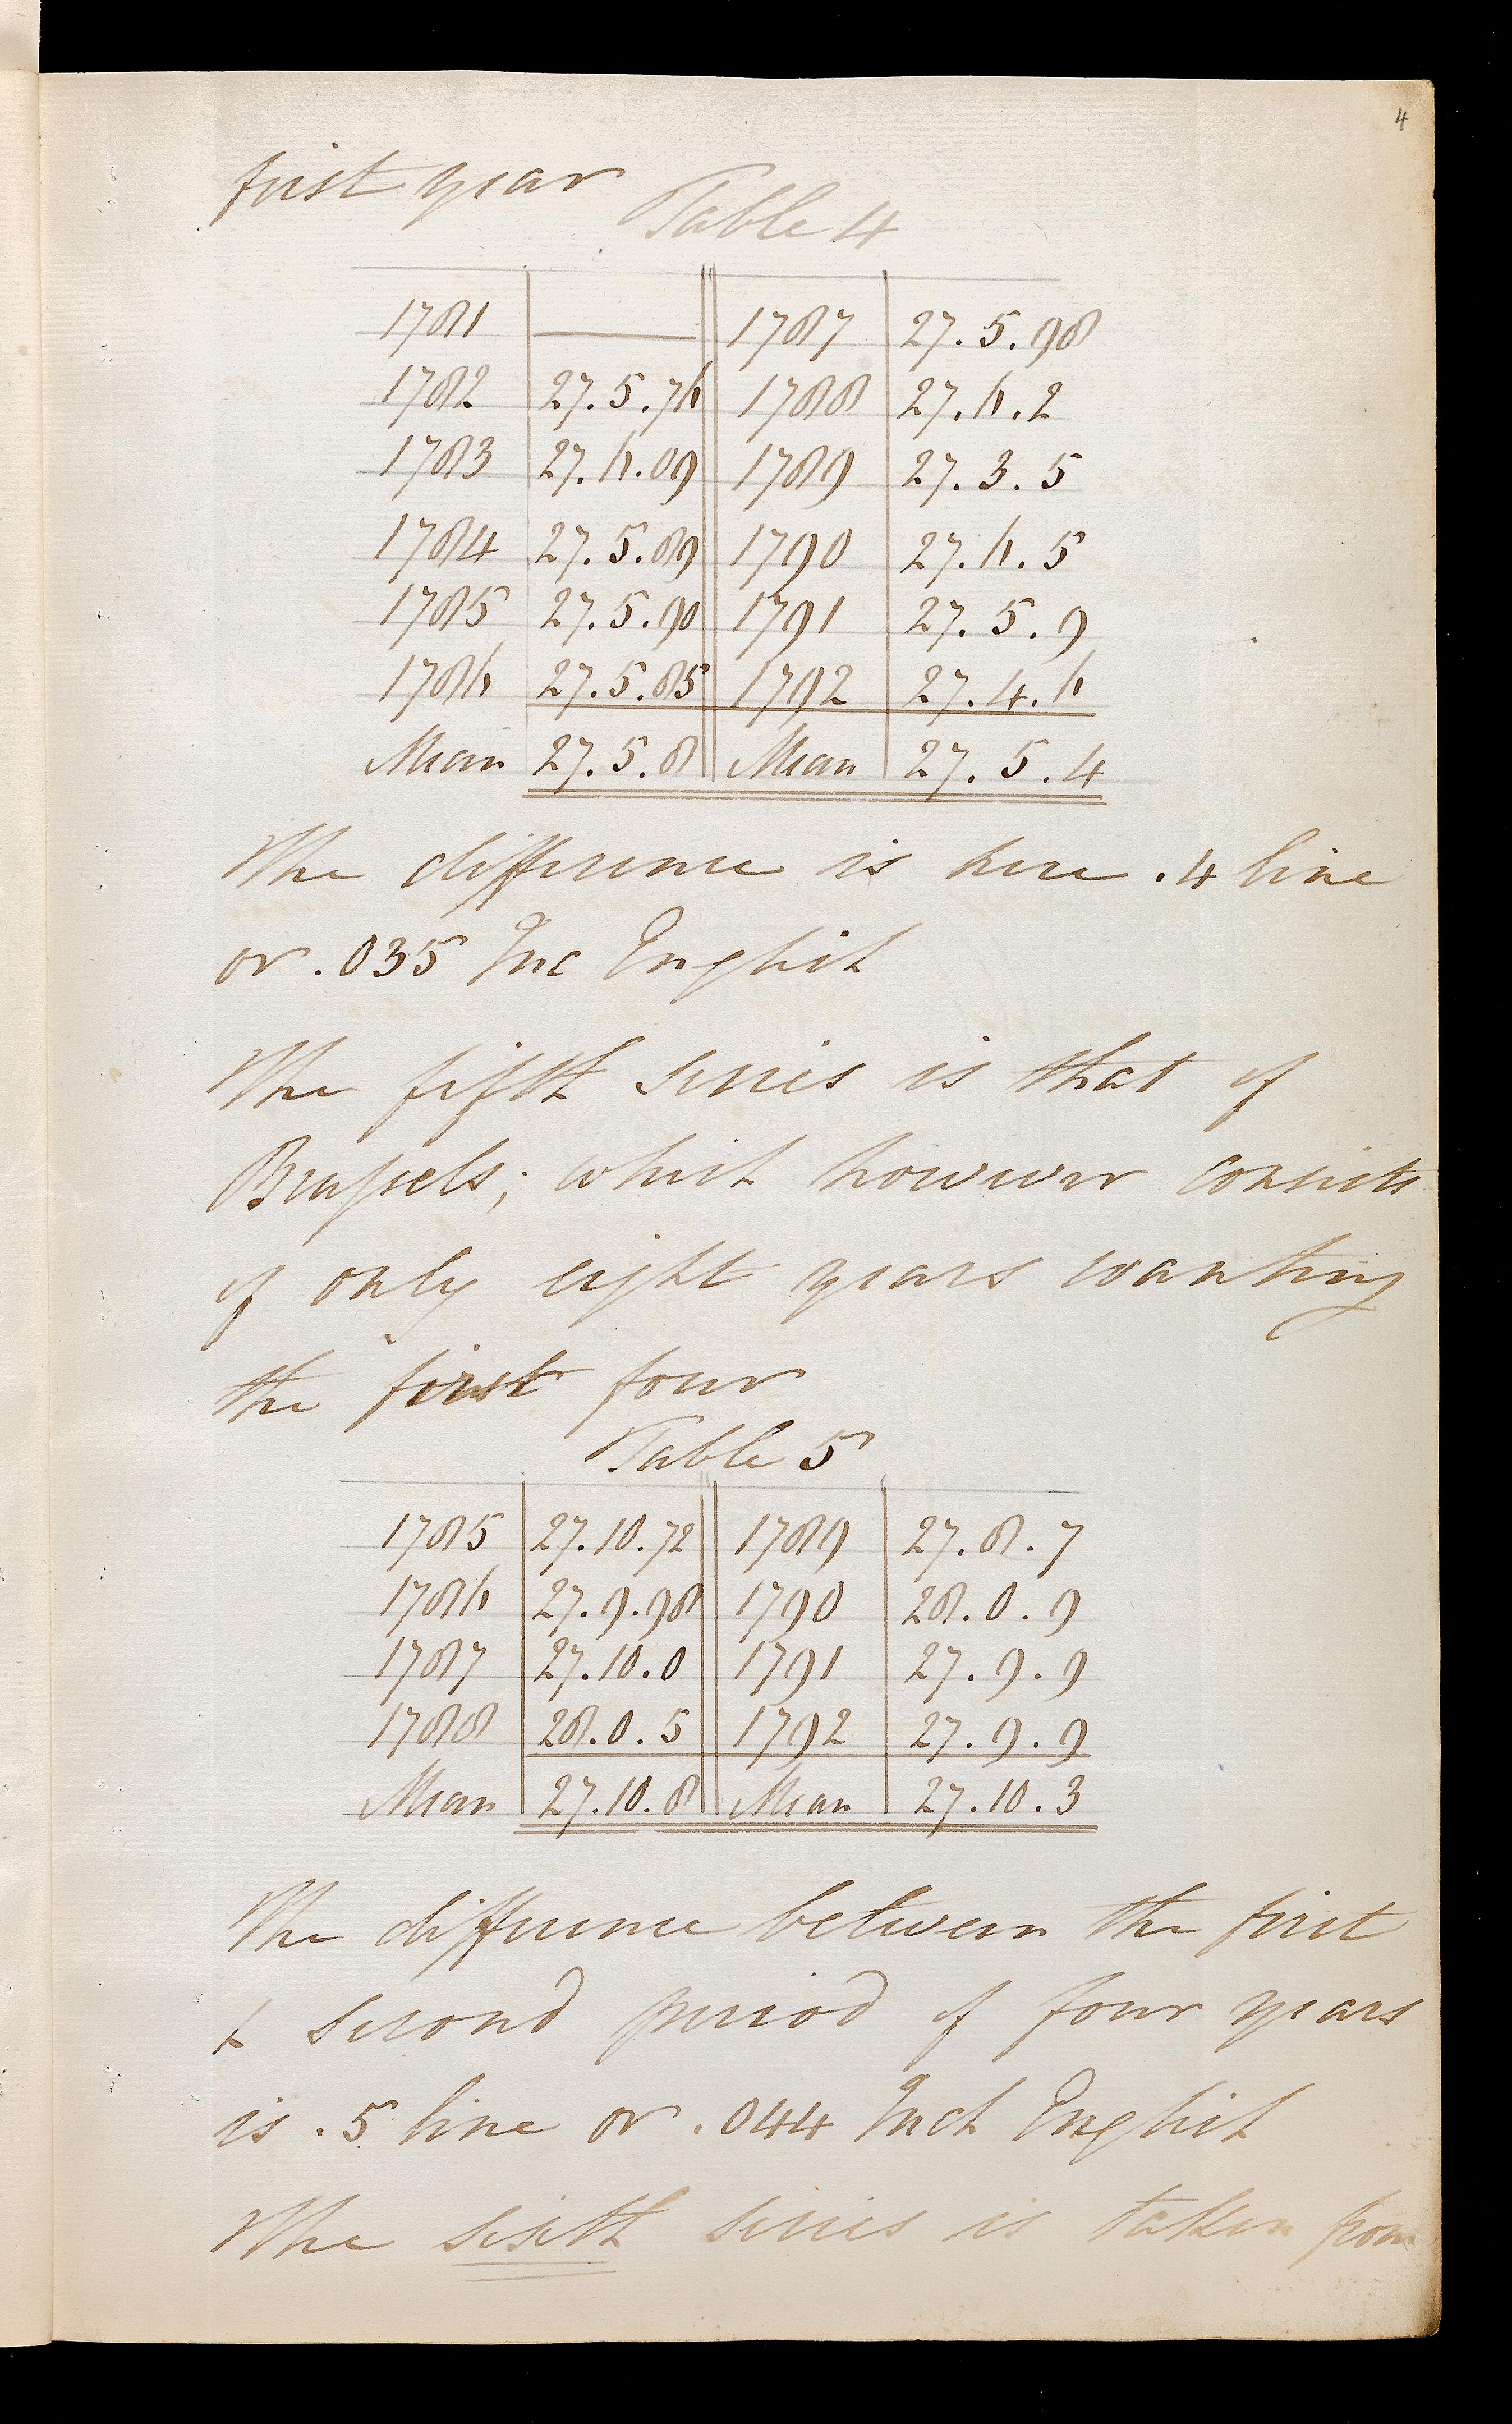 4
first year
Table 4
1781 — 1787 27.5.98
1782 27.5.76 1788 27.6.2
1783 27.6.09 1789 27.3.5
1784 27.5.89 1790 27.6.5
1785 27.5.90 1791 27.5.9
1786 27.5.85 1792 27.4.6
Mean 27.5.8 Mean 27.5.4
The difference is here .4 line
or .035 Inc English
The fifth series is that of
Brussels; which however consists
of only eight years wanting
the first four
Table 5
1785 27.10.72 1789 27.8.7
1786 27.9.98 1790 28.0.9
1787 27.10.0 1791 27.9.9
1788 28.0.5 1792 27.9.9
Mean 27.10.8 Mean 27.10.3
The difference between the first
& second period of four years
is .5 line or .044 Inch English
The sixth series is taken from